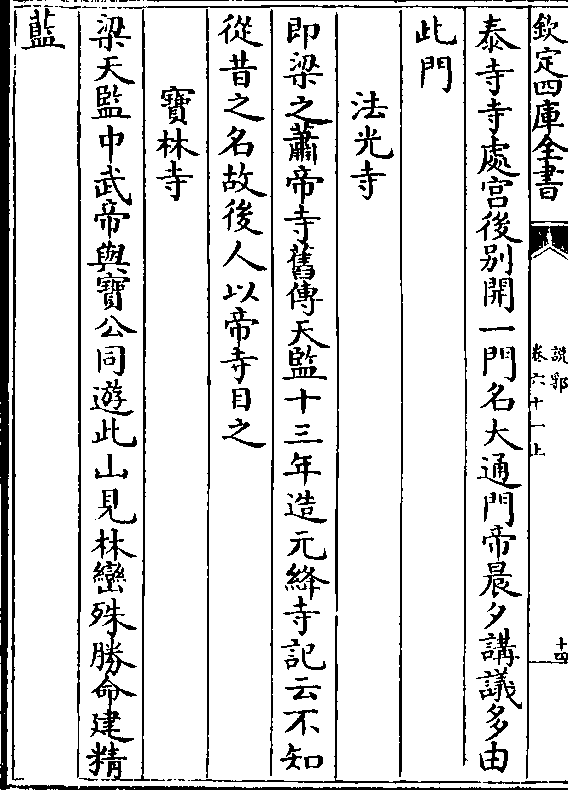 欽定四庫全書
說郛
卷六十一上
十四
泰寺寺處宫後别開一門名大通門帝晨夕講議多由
此門
法光寺
即梁之蕭帝寺舊傳天監十三年造元絳寺記云不知
從昔之名故後人以帝寺目之
寳林寺
梁天監中武帝與寳公同遊此山見林巒殊勝命建精
藍